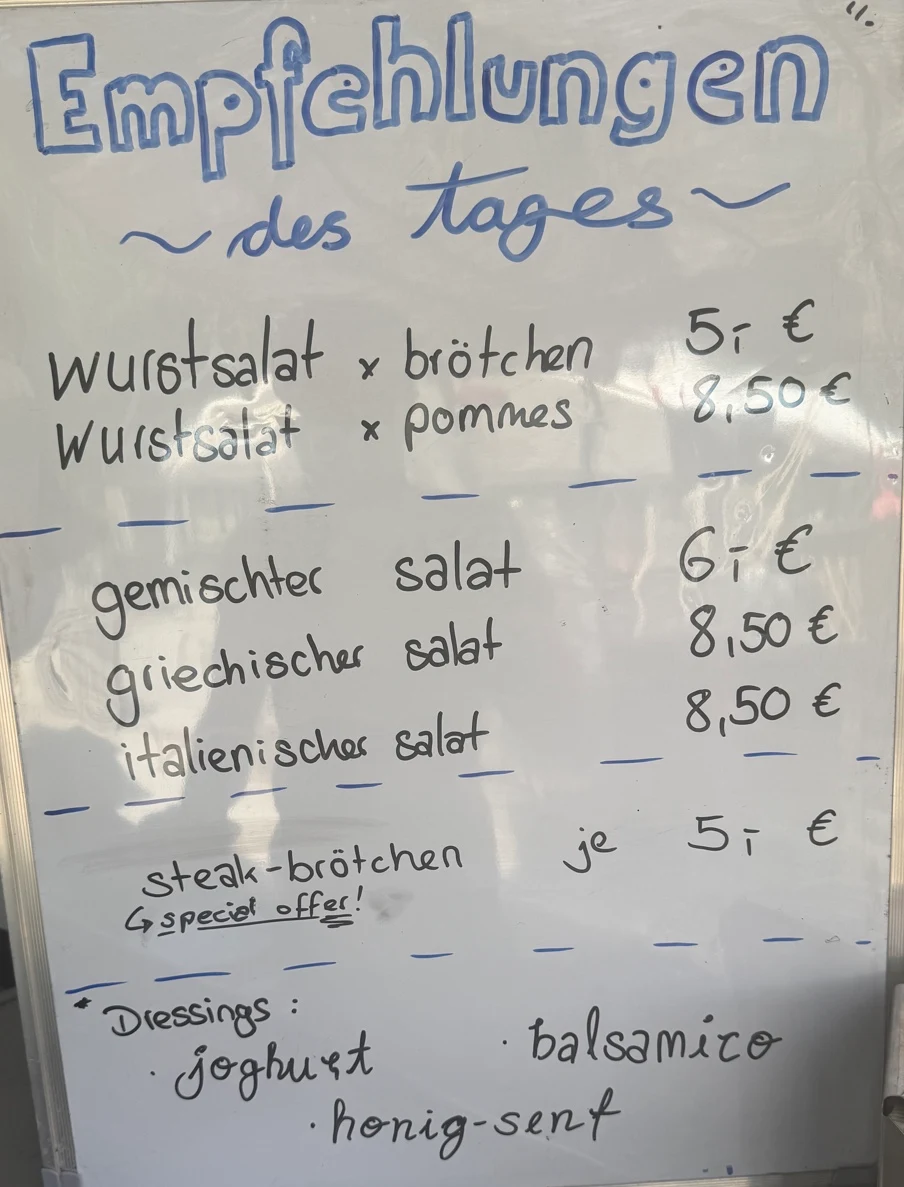 Empfehlungen
~ des tages ~
wurstsalat x brötchen 5,- €
Wurstsalat x pommes 8,50 €
gemischter salat 6,- €
griechischer salat 8,50 €
italienischer salat 8,50 €
steak-brötchen je 5,- €
↳ special offer!
* Dressings :
· joghurt · balsamico
· honig-senf